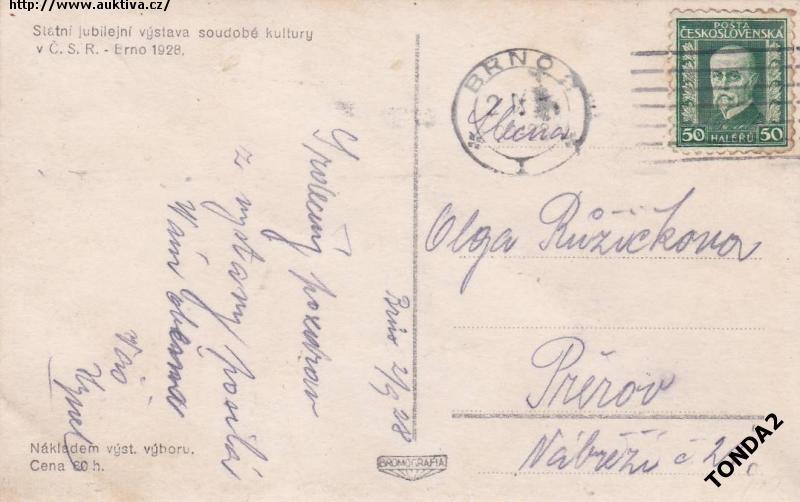 http://www.auktiva.cz/
Státní jubilejní výstava soudobé kultury
v Č. S. R. - Brno 1928.
Srdečný pozdrav
z výstavy posílá
Vám
Váš
Brno 2/9 28
Nákladem výst. výboru.
Cena 80 h.
BROMOGRAFIA
BRNO 2
POŠTA
ČESKOSLOVENSKA
50 HALÉŘŮ 50
Slečna
Olga Růžičkova
Přerov
Nábřeží č
TONDA2